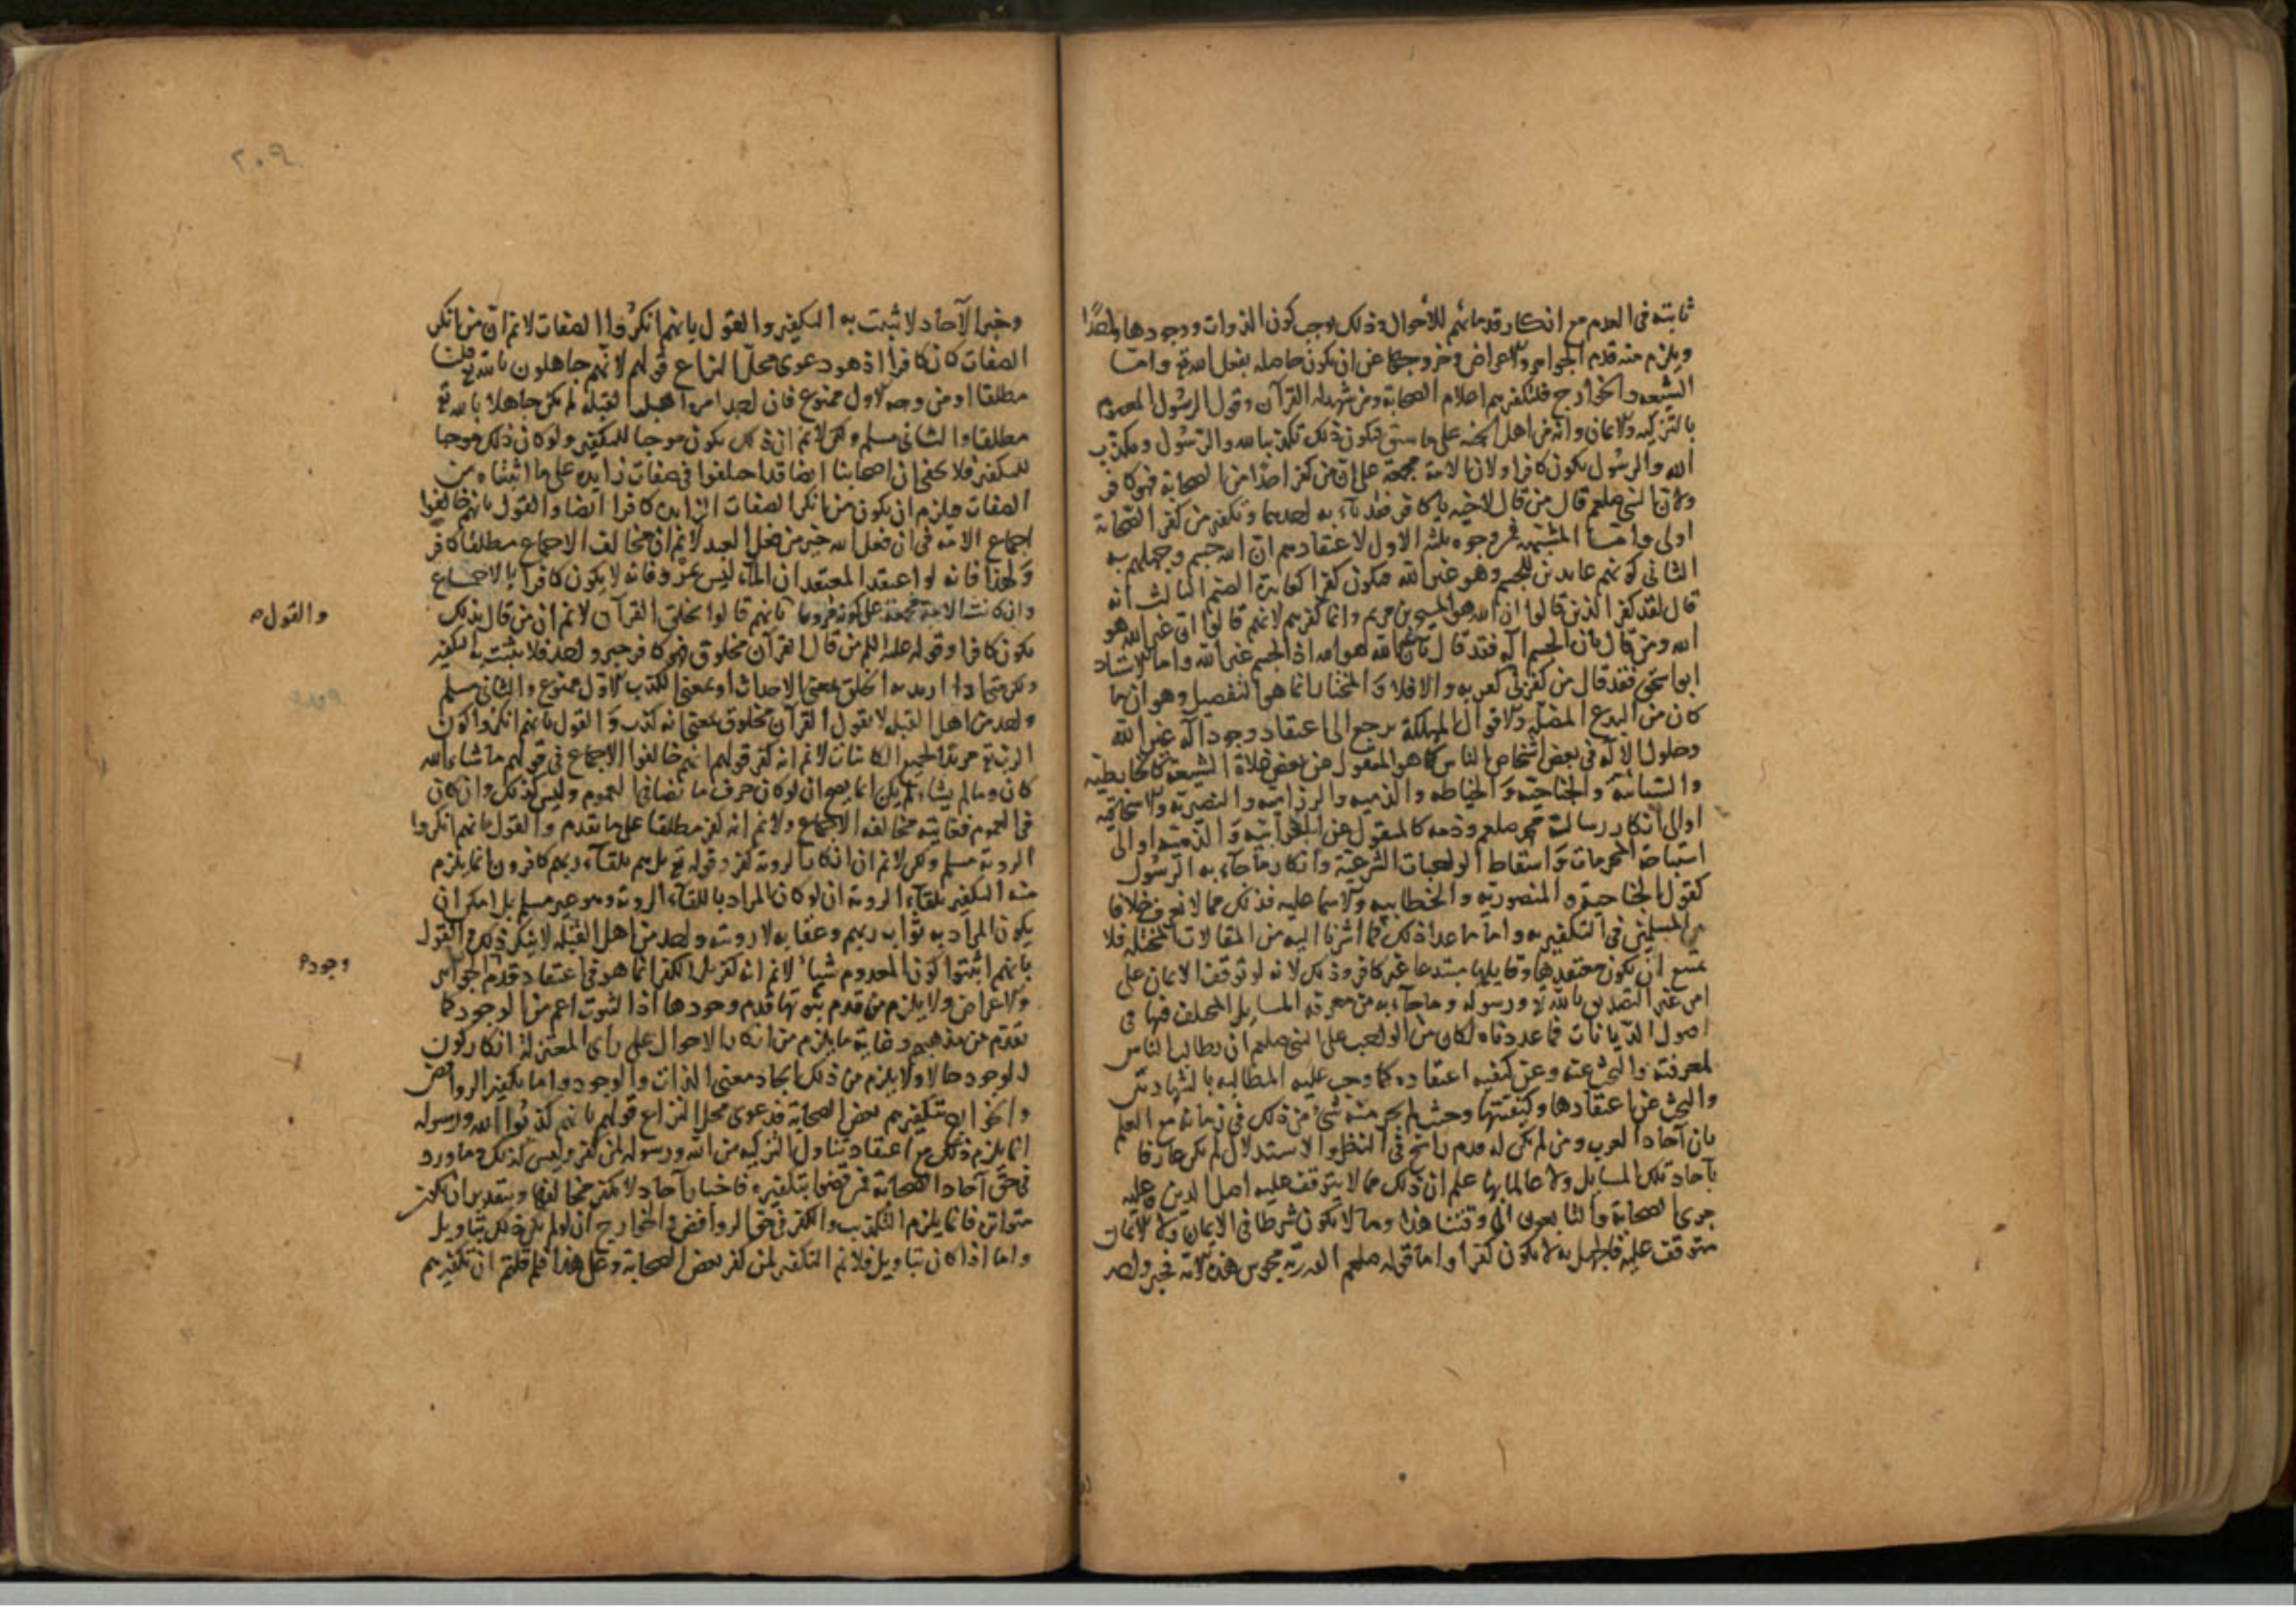 ثابته فى العدم مع انكار قدمائهم للأحوال وذلك يوجب كون الذوات ووجودها واحدًا
ويلزم منه قدم الجواهر والاعراض وخروجها عن ان يكون حاصله بفعل الله تع وامّا
الشيعه والخوارج فلتكفيرهم اعلام الصحابة ومن شهد له القرآن وقول الرسول المعصوم
بالتزكيه والايمان وانه من اهل الجنه على ما سبق فيكون ذلك تكذيبا لله والرسول ومكذب
الله والرسول يكون كافرا ولان الامة مجمعة على ان من كفر احدًا من الصحابة فهو كافر
ولان النبى صلعم قال من قال لاخيه يا كافر فقد باء به احدهما وتكفير من كفر الصحابة
اولى وامّا المشبّهة فمن وجوه ثلثه الاول لاعتقادهم ان الله جسم وجهلهم به
الثانى كونهم عابدين للجسم وهو غير الله فيكون كفرا كعابدة الصنم الثالث انه
قال لقد كفر الذين قالوا ان الله هو المسيح بن مريم وانما كفرهم لانهم قالوا ان غير الله هو
الله ومن قال بان الجسم آله فقد قال بان غير الله هو الله اذ الجسم غير الله واما الاستاد
ابو اسحق فقد قال من كفرنى كفر به والا فلا والمختار انما هو التفصيل وهو ان ما
كان من البدع المضلّه والاقوال المهلكة يرجع الى اعتقاد وجود آله غير الله
وحلول الاله فى بعض اشخاص الناس كما هو المنقول عن بعض غلاة الشيعة كالحابطيه
والسبائيّه والجناحيّه والخياطه والذميه والرزاميه والنصيريّه والاسحاقيّه
او الى انكار رسالة محمد صلعم وذمه كالمنقول عن الغرابيّه والذمّيّه او الى
استباحة المحرمات واسقاط الواجبات الشرعيّة وانكار ما جاء به الرسول
كقول الجناحية والمنصوريّه والخطابيه والاسماعليه فذلك مما لا نعرف خلافا
بين المسلمين فى التكفير به واما ما عدا ذلك مما اشرنا اليه من المقالات المختلفه فلا
يمتنع ان يكون معتقدها وقايلها مبتدعا غير كافر وذلك لانه لو توقف الايمان على
امر غير التصديق بالله تع ورسوله وما جاء به من معرفه المسايل المختلف فيها فى
اصول الديانات مما عددناه لكان من الواجب على النبى صلعم ان يطالب الناس
لمعرفته والبحث عنه وعن كيفيه اعتقاده كما وجب عليه المطالبه بالشهادتين
والبحث عن اعتقادها وكيفيّتها وحيث لم يجر منه شئ من ذلك فى زمانه مع العلم
بان آحاد العرب ومن لم يكن له قدم راسخ فى النظر والاستدلال لم يكن عارفا
بآحاد تلك المسايل ولا عالما بها علم ان ذلك مما لا يتوقف عليه اصل الدين وعليه
جرى الصحابة والتابعون الى وقتنا هذا وما لا يكون شرطا فى الايمان ولا الايمان
متوقف عليه فالجهل به لا يكون كفرا واما قوله صلعم القدريّه مجوس هذه الامّة فخبر واحد
٢٠٩
وخبر الآحاد لا يثبت به التكفير والقول بانهم انكرُوا الصفات لا نم ان من انكر
الصفات كان كافرا اذ هو دعوى محل النزاع قولهم لانهم جاهلون بالله تع قلنا
مطلقا او من وجه الاول ممنوع فان احدا من اهل القبلة لم يكن جاهلا بالله تع
مطلقا والثانى مسلم ولكن لا نم ان ذلك يكون موجبا للتكفير ولو كان ذلك موجبا
للتكفير فلا يخفى ان اصحابنا ايضا قد اختلفوا فى صفات زايده على ما اثبتناه من
الصفات فيلزم ان يكون من انكر الصفات الزايده كافرا ايضا والقول بانهم خالفوا
اجماع الامّة فى ان فعل الله خير من فعل العبد لا نم ان مخالف الاجماع مطلقا كافر
ولهذا فانه لو اعتقد المعتقد ان الماء ليس بمرو فانه لا يكون كافرا بالاجماع
وان كانت الامة مجمعة على كونه مرويا بانهم قالوا بخلق القرآن لا نم ان من قال بذلك
والقول صه
يكون كافرا وقوله عليه السلم من قال القرآن مخلوق فهو كافر خبر واحد فلا يثبت به التكفير
ولكن متى اذا اريد به الخلق بمعنى الاحداث او بمعنى الكذب الاول ممنوع والثانى مسلم
واحد من اهل القبله لا يقول القرآن مخلوق بمعنى انه كذب والقول بانهم انكروا كون
الرب تع مريدا لجميع الكائنات لا نم انه كفر قولهم انهم خالفوا الاجماع فى قولهم ما شاء الله
كان وما لم يشاء لم يكن انما يصح ان لو كان حرف ما نصا فى العموم وليس كذلك وان كان
فى العموم فغايته مخالفه الاجماع ولا نم انه كفر مطلقا على ما تقدم والقول بانهم انكروا
الرويه مسلم ولكن لا نم ان انكار الرويه كفر وقوله تع بل هم بلقاء ربهم كافرون انما يلزم
منه التكفير بلقاء الرويه ان لو كان المراد باللقاء الرويه وهو غير مسلم بل امكن ان
يكون المراد به ثواب ربهم وعقابه لا رويته واحد من اهل القبله لا ينكر ذلك والقول
بانهم اثبتوا كون المعدوم شيأ لا نم انه كفر بل الكفر انما هو فى اعتقاد قدم الجواهر
وجود صه
والاعراض ولا يلزم من قدم ثبوتها قدم وجودها اذ الثبوت اعم من الوجود كما
تقدم من مذهبهم وغاية ما يلزم من انكار الاحوال على رأى المعتزلة انكار كون
الوجود حالا ولا يلزم من ذلك اتحاد معنى الذات والوجود واما تكفير الروافض
والخوارج بتكفيرهم بعض الصحابة فدعوى محل النزاع قولهم بانهم كذبُوا الله ورسوله
انما يلزم ذلك مع اعتقاد تناول التزكيه من الله ورسوله لمن كفر وليس كذلك وما ورد
فى حق آحاد الصحابة ممن قضوا بتكفيره فاخبار آحاد لا يكفر مخالفها وبتقدير ان يكون
متواترا فانما يلزم التكذيب والكفر فى حق الروافض والخوارج ان لو لم يكن ذلك بتاويل
واما اذا كان بتاويل فلا نم التكفير لمن كفر بعض الصحابة وعلى هذا فلم قلتم ان تكفيرهم